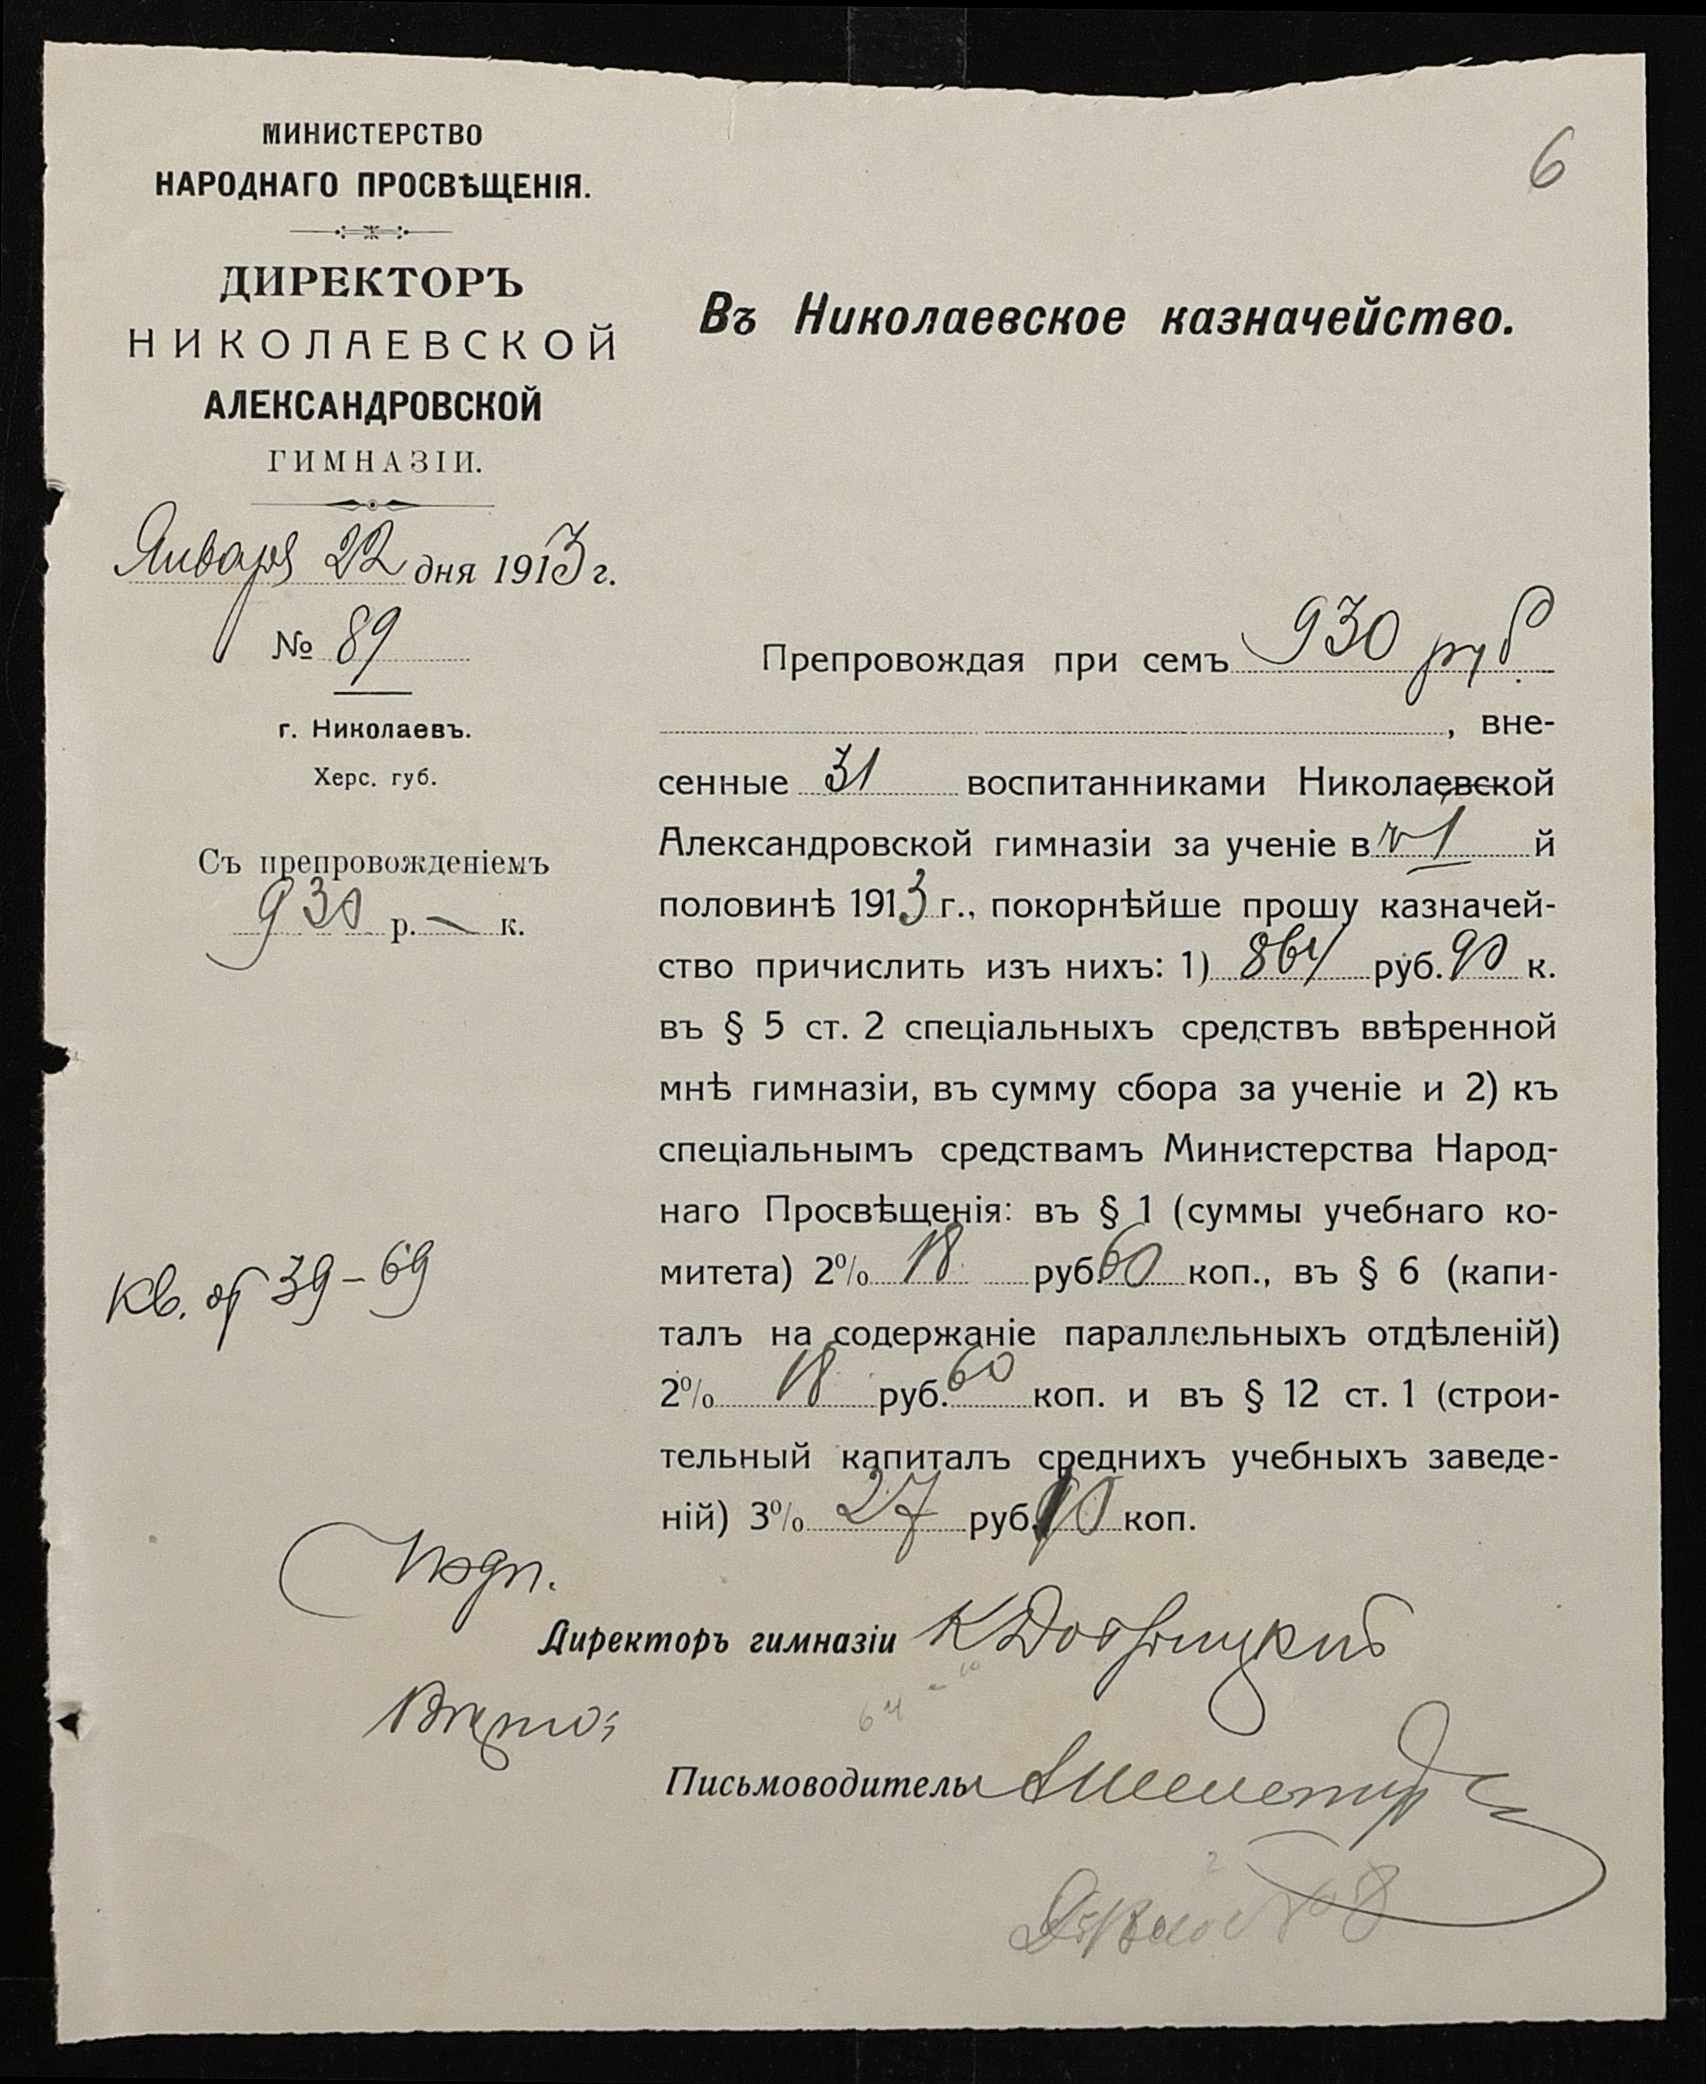 6
МИНИСТЕРСТВО
НАРОДНАГО ПРОСВѢЩЕНІЯ.
ДИРЕКТОРЪ
НИКОЛАЕВСКОЙ
АЛЕКСАНДРОВСКОЙ
ГИМНАЗІИ.
Января 22 дня 1913 г.
№ 89
г. Николаевъ.
Херс. губ.
Съ препровожденіемъ
930 р. — к.
Кв. от 39-69
Въ Николаевское казначейство.
Препровождая при семъ 930 руб.
, вне-
сенные 31 воспитанниками Николаевской
Александровской гимназіи за ученіе в 1 й
половинѣ 1913 г., покорнѣйше прошу казначей-
ство причислить изъ нихъ: 1) 864 руб. 90 к.
въ § 5 ст. 2 спеціальныхъ средствъ ввѣренной
мнѣ гимназіи, въ сумму сбора за ученіе и 2) къ
спеціальнымъ средствамъ Министерства Народ-
наго Просвѣщенія: въ § 1 (суммы учебнаго ко-
митета) 2% 18 руб. 60 коп., въ § 6 (капи-
талъ на содержаніе параллельныхъ отдѣленій)
2% 18 руб. 60 коп. и въ § 12 ст. 1 (строи-
тельный капиталъ среднихъ учебныхъ заведе-
ній) 3% 27 руб. 90 коп.
Подп.
Директоръ гимназіи К
Вѣрно:
64
Письмоводитель